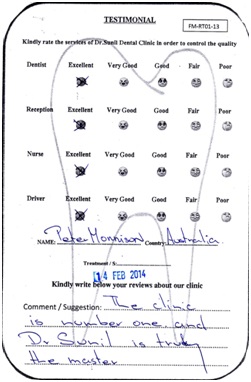 TESTIMONIAL
FM-RT01-13
Kindly rate the services of Dr.Sunil Dental Clinic in order to control the quality
Dentist Excellent Very Good Good Fair Poor
Reception Excellent Very Good Good Fair Poor
Nurse Excellent Very Good Good Fair Poor
Driver Excellent Very Good Good Fair Poor
NAME: Peter Morrison Country: Australia
Treatment / S:
14 FEB 2014
Kindly write below your reviews about our clinic
Comment / Suggestion: The clinic
is number one and
Dr Sunil is truly
the master